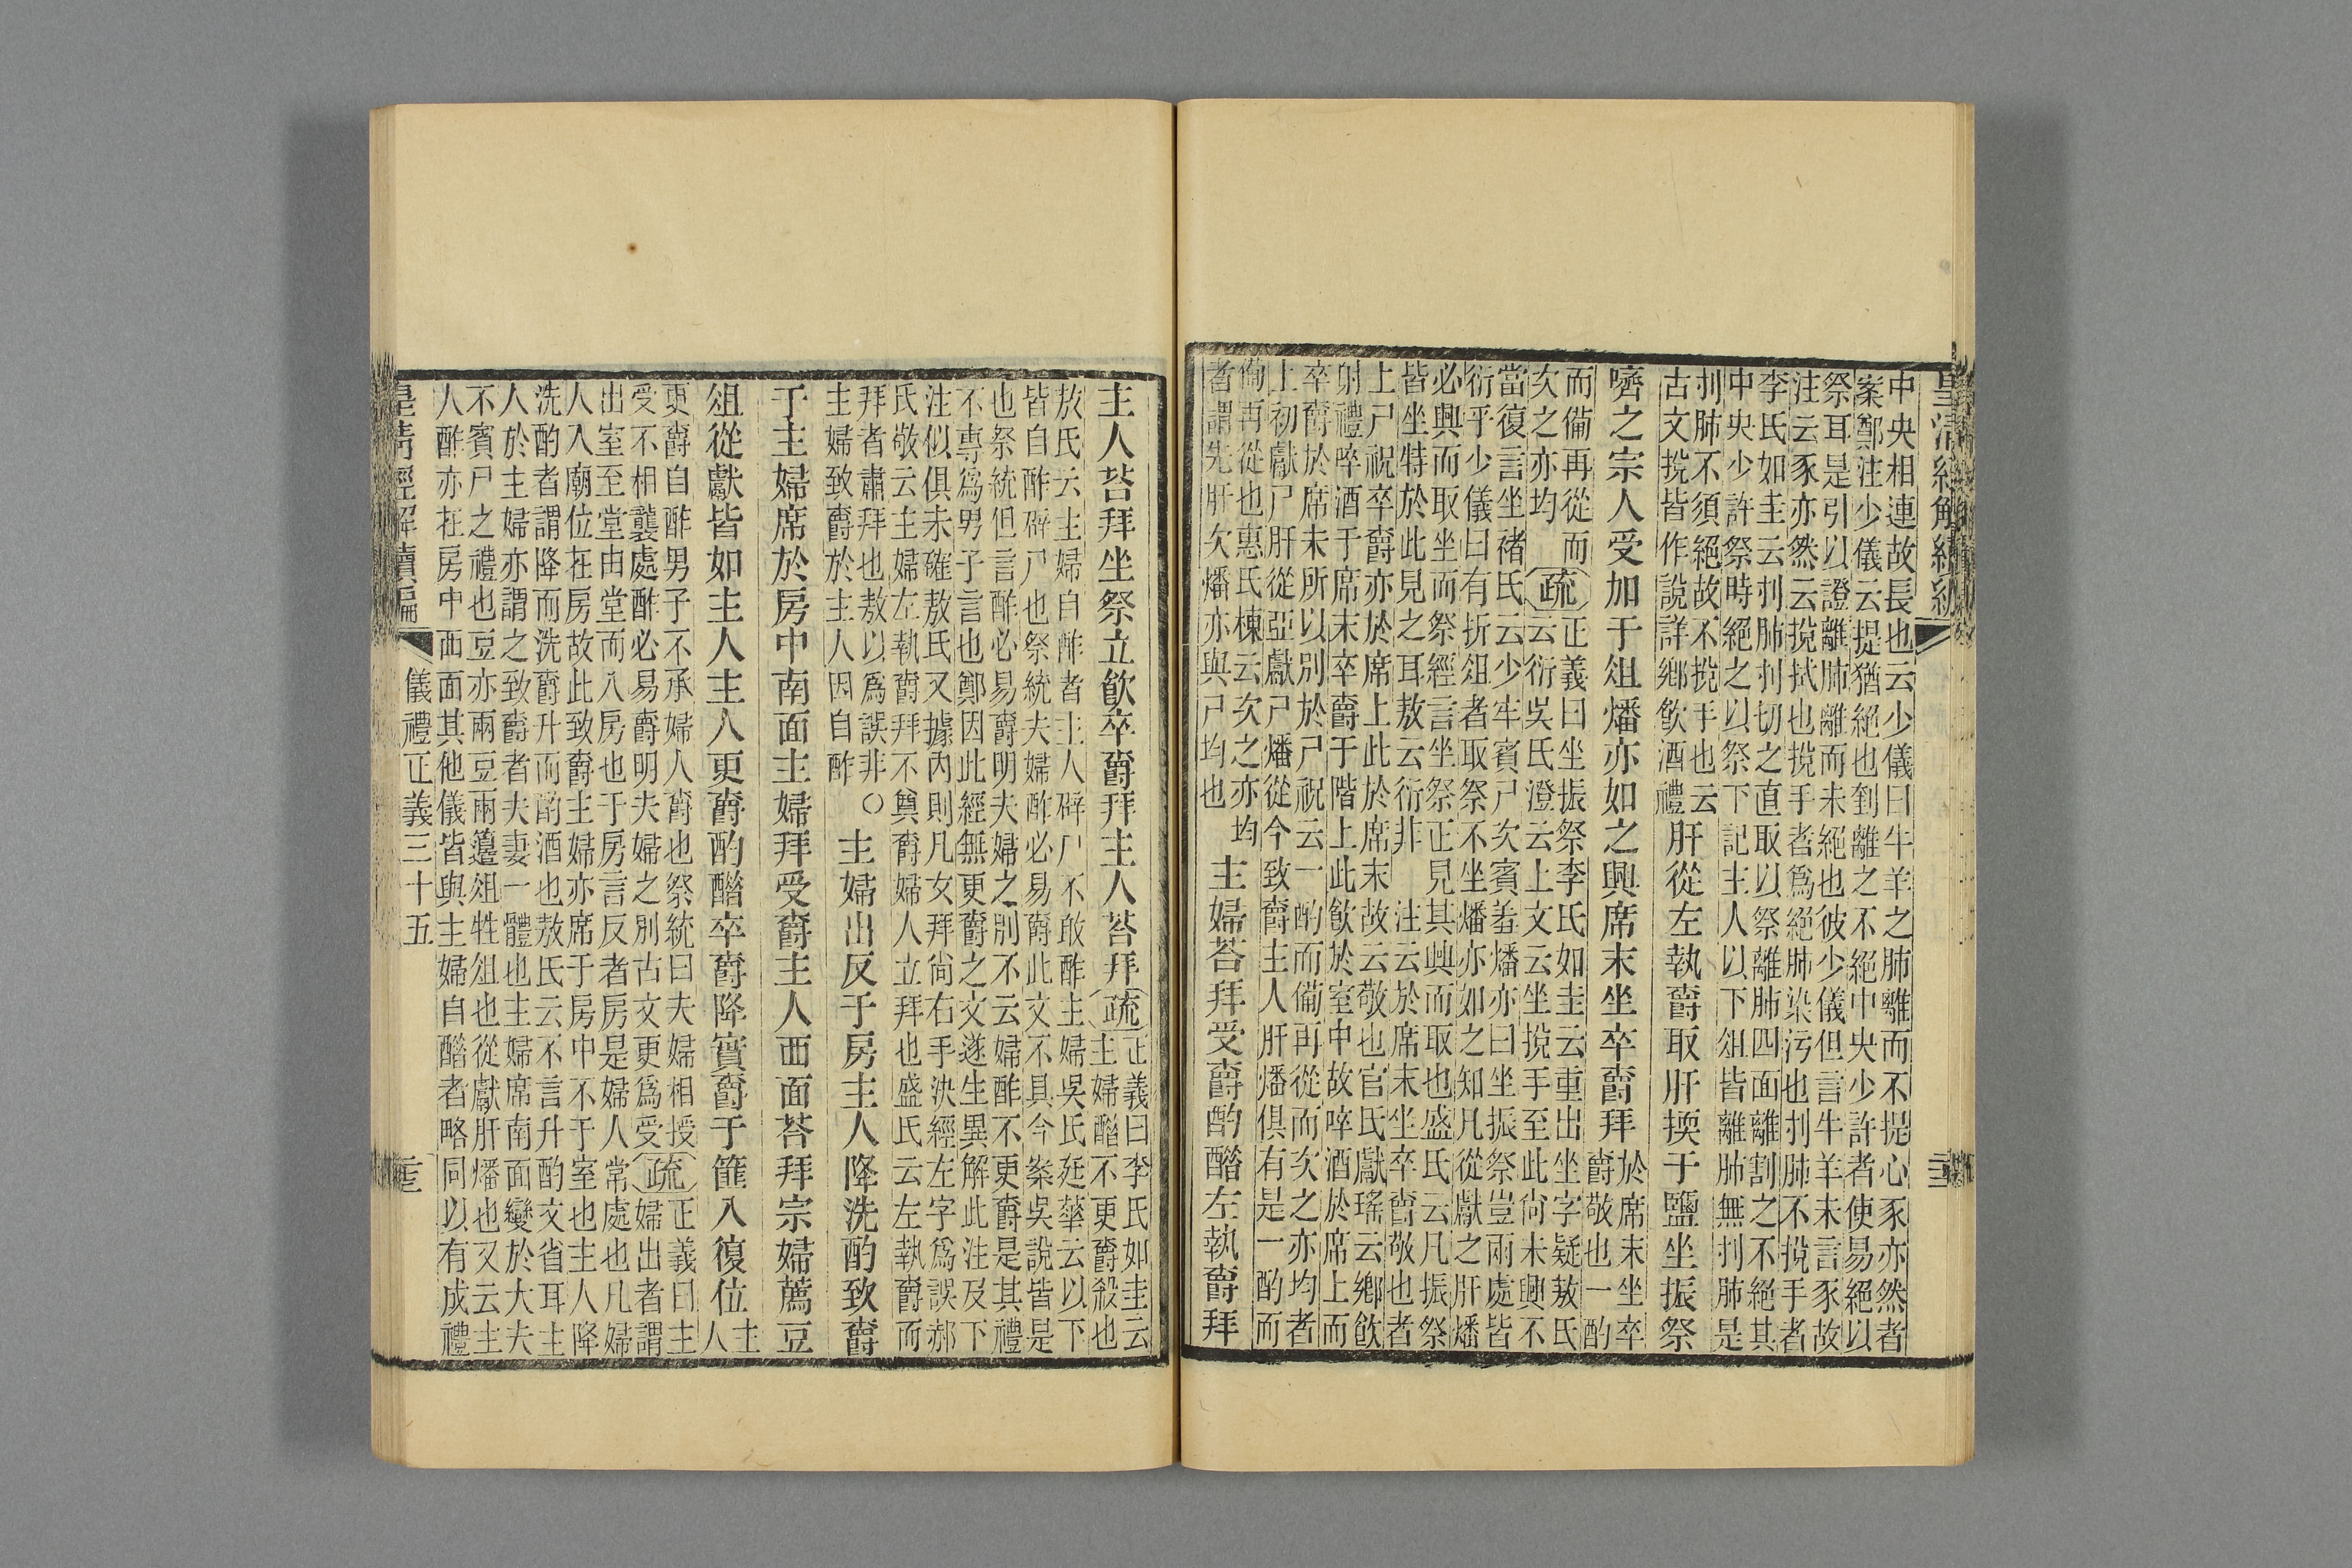 皇清經解續編 
中央相連故長也云少儀曰牛羊之肺離而不提心豕亦然者
案鄭注少儀云提猶絕也刌離之不絕中央少許者使易絕以
祭耳是引以證離肺離而未絕也彼少儀但言牛羊未言豕故
注云豕亦然云挩拭也挩手者爲絕肺染污也刌肺不挩手者
李氏如圭云刌肺刌切之直取以祭離肺四面離割之不絕其
中央少許祭時絕之以祭下記主人以下俎皆離肺無刌肺是
刌肺不須絕故不挩手也云
古文挩皆作說詳鄉飲酒禮
肝從左執爵取肝擩于鹽坐振祭
嚌之宗人受加于俎燔亦如之興席末坐卒爵拜
於席末坐卒
爵敬也一酌
而備再從而
次之亦均
疏
正義曰坐振祭李氏如圭云重出坐字疑敖氏
云衍吳氏澄云上文云坐挩手至此尚未興不
當復言坐褚氏云少牢賓尸次賓羞燔亦曰坐振祭豈兩處皆
衍乎少儀曰有折俎者取祭不坐燔亦如之知凡從獻之肝燔
必興而取坐而祭經言坐祭正見其興而取也盛氏云凡振祭
皆坐特於此見之耳敖云衍非 注云於席末坐卒爵敬也者
上尸祝卒爵亦於席上此於席末故云敬也官氏獻瑤云鄉飲
射禮啐酒于席末卒爵于階上此飲於室中故啐酒於席上而
卒爵於席末所以別於尸祝云一酌而備再從而次之亦均者
上初獻尸肝從亞獻尸燔從今致爵主人肝燔俱有是一酌而
備再從也惠氏棟云次之亦均
者謂先肝次燔亦與尸均也
主婦荅拜受爵酌醋左執爵拜
主人荅拜坐祭立飮卒爵拜主人荅拜
疏
正義曰李氏如圭云
主婦醋不更爵殺也
敖氏云主婦自酢者主人辟尸不敢酢主婦吳氏廷華云以下
皆自酢辟尸也祭統夫婦酢必易爵此文不具今案吳說皆是
也祭統但言酢必易爵明夫婦之別不云婦酢不更爵是其禮
不專爲男子言也鄭因此經無更爵之文遂生異解此注及下
注似俱未確敖氏又據內則凡女拜尚右手決經左字爲誤郝
氏敬云主婦左執爵拜不奠爵婦人立拜也盛氏云左執爵而
拜者肅拜也敖以爲誤非○
主婦致爵於主人因自酢
主婦出反于房主人降洗酌致爵
于主婦席於房中南面主婦拜受爵主人西面荅拜宗婦薦豆
俎從獻皆如主人主人更爵酌醋卒爵降實爵于篚入復位
主
人
更爵自酢男子不承婦人爵也祭統曰夫婦相授
受不相襲處酢必易爵明夫婦之別古文更爲受
疏
正義曰主
婦出者謂
出室至堂由堂而入房也于房言反者房是婦人常處也凡婦
人入廟位在房故此致爵主婦亦席于房中不于室也主人降
洗酌者謂降而洗爵升而酌酒也敖氏云不言升酌文省耳主
人於主婦亦謂之致爵者夫妻一體也主婦席南面變於大夫
不賓尸之禮也豆亦兩豆兩籩俎牲俎也從獻肝燔也又云主
人酢亦在房中西面其他儀皆與主婦自醋者略同以有成禮
皇清經解續編
儀禮正義三十五